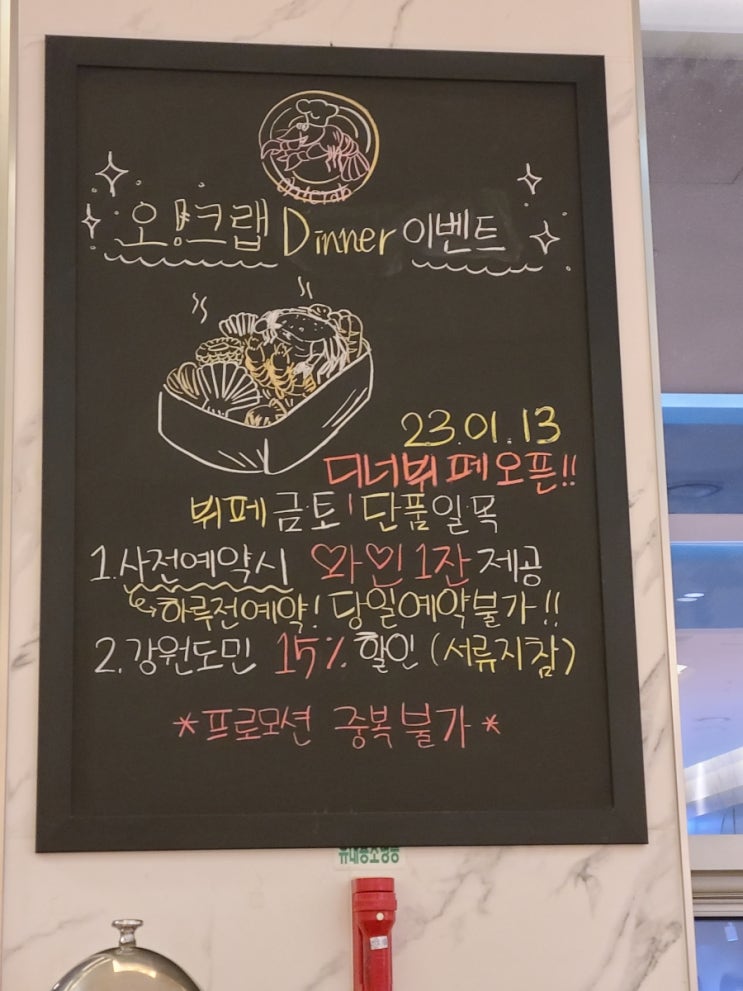 Oh!Crab
오!크랩 Dinner 이벤트
23.01.13
디너뷔페오픈!!
뷔페 금토 | 단품 일목
1.사전예약시 와인 1잔 제공
하루전예약! 당일예약불가!!
2.강원도민 15% 할인 (서류지참)
*프로모션 중복불가*
휴대용조명등